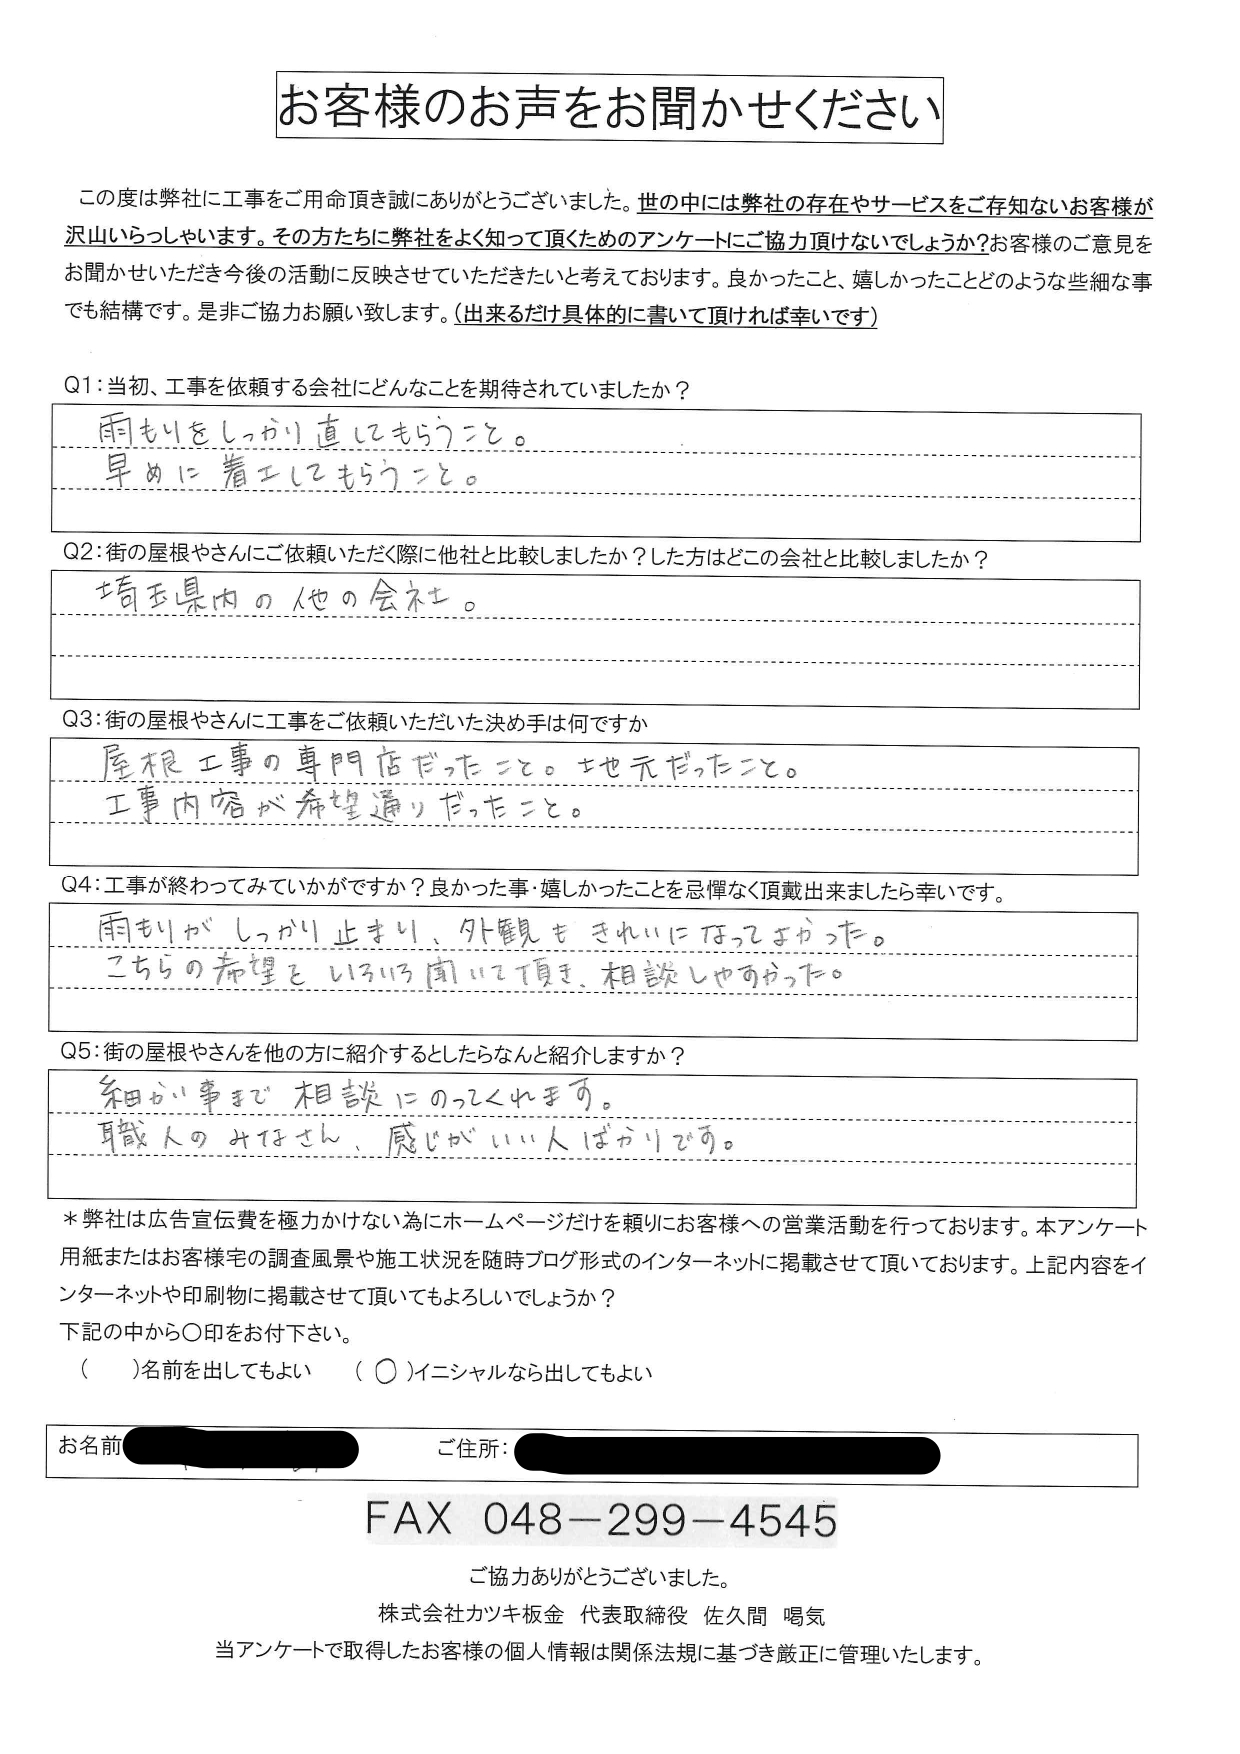 お客様のお声をお聞かせください
この度は弊社に工事をご用命頂き誠にありがとうございました。世の中には弊社の存在やサービスをご存知ないお客様が
沢山いらっしゃいます。その方たちに弊社をよく知って頂くためのアンケートにご協力頂けないでしょうか?お客様のご意見を
お聞かせいただき今後の活動に反映させていただきたいと考えております。良かったこと、嬉しかったことどのような些細な事
でも結構です。是非ご協力お願い致します。(出来るだけ具体的に書いて頂ければ幸いです)
Q1:当初、工事を依頼する会社にどんなことを期待されていましたか?
雨もりをしっかり直してもらうこと。
早めに着工してもらうこと。
Q2:街の屋根やさんにご依頼いただく際に他社と比較しましたか?した方はどこの会社と比較しましたか?
埼玉県内の他の会社。
Q3:街の屋根やさんに工事をご依頼いただいた決め手は何ですか
屋根工事の専門店だったこと。地元だったこと。
工事内容が希望通りだったこと。
Q4:工事が終わってみていかがですか?良かった事・嬉しかったことを忌憚なく頂戴出来ましたら幸いです。
雨もりがしっかり止まり、外観もきれいになってよかった。
こちらの希望をいろいろ聞いて頂き、相談しやすかった。
Q5:街の屋根やさんを他の方に紹介するとしたらなんと紹介しますか?
細かい事まで相談にのってくれます。
職人のみなさん、感じがいい人ばかりです。
*弊社は広告宣伝費を極力かけない為にホームページだけを頼りにお客様への営業活動を行っております。本アンケート
用紙またはお客様宅の調査風景や施工状況を随時ブログ形式のインターネットに掲載させて頂いております。上記内容をイ
ンターネットや印刷物に掲載させて頂いてもよろしいでしょうか?
下記の中から〇印をお付下さい。
( )名前を出してもよい (〇)イニシャルなら出してもよい
お名前 ご住所:
FAX 048-299-4545
ご協力ありがとうございました。
株式会社カツキ板金 代表取締役 佐久間 喝気
当アンケートで取得したお客様の個人情報は関係法規に基づき厳正に管理いたします。